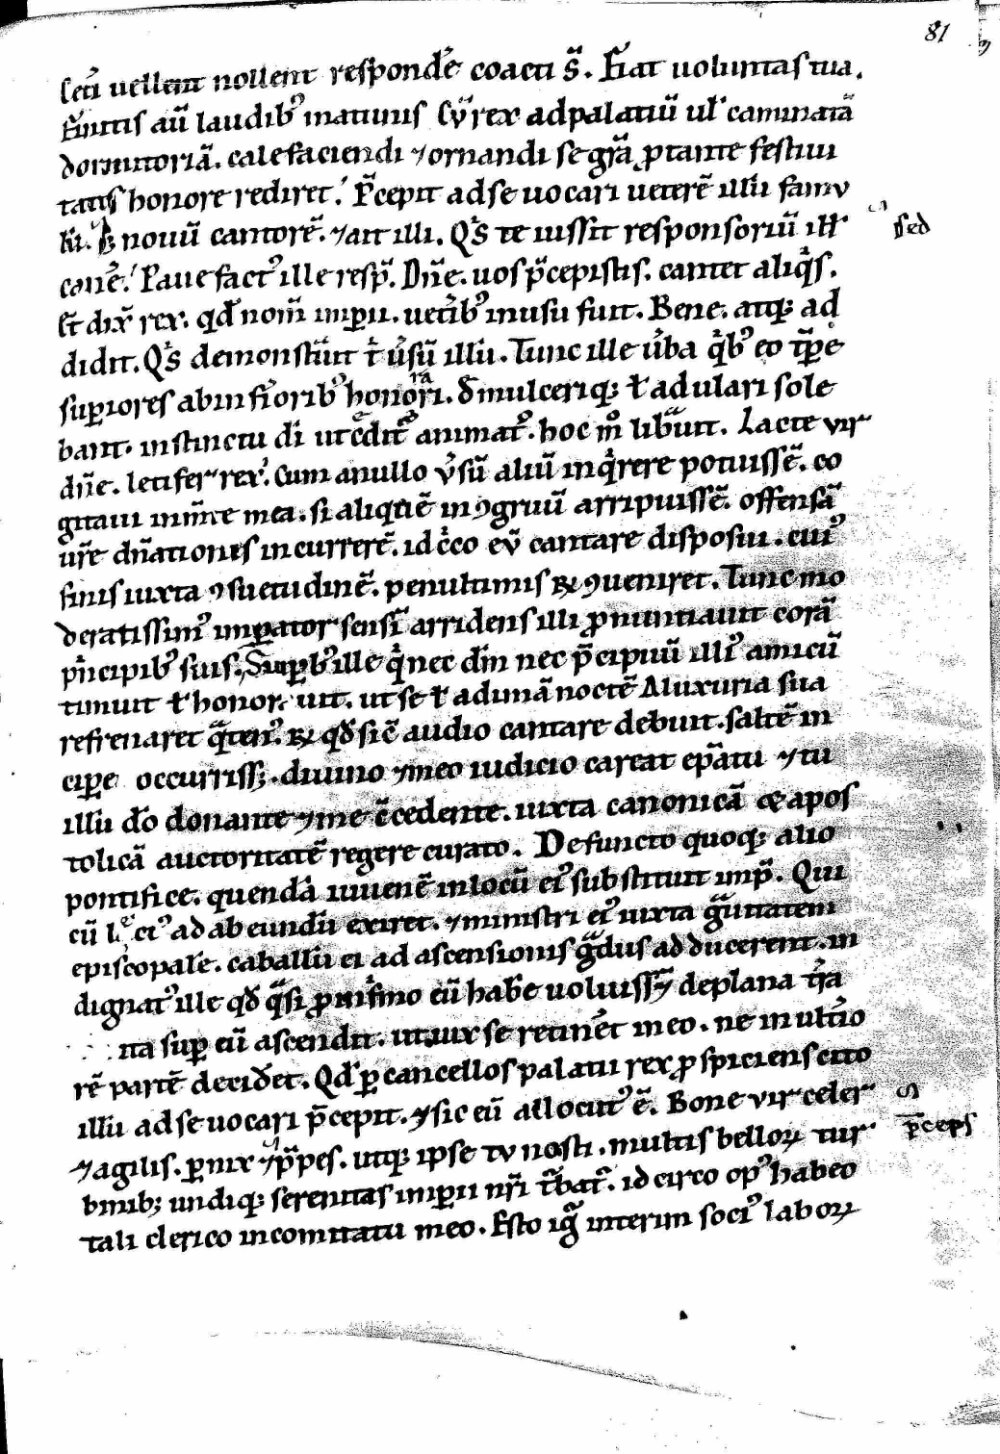 81
ceti uellent nollent respondẽ coacti s̃. Fiat uoluntas tua.
Finitis aũ laudibꝰ matutinis cũ rex ad palatiũ ul' caminatã
dormitoriã. calefaciendi ⁊ ornandi se gr̃a ꝓ tante festiui
tatis honore rediret. p̃cepit ad se uocari ueterẽ illũ famu
lũ. nouũ cantorẽ. ⁊ ait illi. Qͥs te iussit responsoriũ ill'
sed
canẽ. Pauefactꝰ ille resp̃. Dñe. uos p̃cepistis. cantet aliqͥs.
Et dix̃ rex. qd̃ nom̃ imꝑii. uet̃ibꝰ in usu fuit. Bene. atqꝫ ad
didit. Qͥs demonst̃uit t' ũsũ illũ. Tunc ille ũba qͥbꝰ eo tp̃re
suꝑiores ab inf̃ioribꝰ honorari. demulceriqꝫ ł adulari sole
bant. instinctu di ut c̃ditꝰ animatꝰ. hoc mͦ libuit. Lacte uir
dñe. letifer rex. Cum a nullo ũsũ aliũ inqͥrere potuissẽ. co
gitaui in m̃te mea. si aliquẽ inꝯgruũ arripuissẽ. offensã
ur̃e dñationis incurrerẽ. idcͥco eũ cantare disposui. cuiꝰ
finis iuxta ꝯsuetudinẽ. penultimis ꝯueniret. Tunc mo
deratissimꝰ imꝑator sensĩ arridens illi ꝓnuntiauit corã
pͥncipibꝰ suis. Suꝑbꝰ ille qͥ nec dm̃ nec p̃cipuũ illiꝰ amicũ
timuit ł honor uit. ut se ł ad unã noctẽ A luxuria sua
refrenaret q̃tenꝰ qd̃ sic̃ audio cantare debuit. saltẽ in
ciꝑe occurrissꝫ. diuino ⁊ meo iudicio careat ep̃atu ⁊ tu
illũ do donante ⁊ me c̃cedente. iuxta canonicã & apos
tolicã auctoritatẽ regere curato. Defuncto quoqꝫ alio
pontifice. quendã iuuenẽ in locũ eiꝰ substituit imp̃. Qui
cũ lͤtꝰ ad abeundũ exiret. ⁊ ministri eiꝰ iuxta g̃uitatem
episcopale. caballũ ei ad ascensionis g̃dus adducerent. in
dignatꝰ ille qd̃ q̃si ꝓ infͥmo eũ habe uoluissꝫ de plana tr̃a
ita suꝑ eũ ascendit. ut uix se retinet in eo. ne in ult̃io
rẽ partẽ decidet. Qd̃ ꝑ cancellos palatii rex ꝓspiciens cito
illũ ad se uocari p̃cepit. ⁊ sic eũ allocutꝰ ẽ. Bone uir celer
⁊ agilis. ꝑnix ⁊ p̃pes. utqꝫ ipse tu nosti. multis belloꝝ tur
p̃ceps
binibꝫ undiqꝫ serenitas imꝑii nr̃i t̃batꝰ. id circo opꝰ habeo
tali clerico in comitatu meo. Esto ig̃ interim sociꝰ laboꝝ